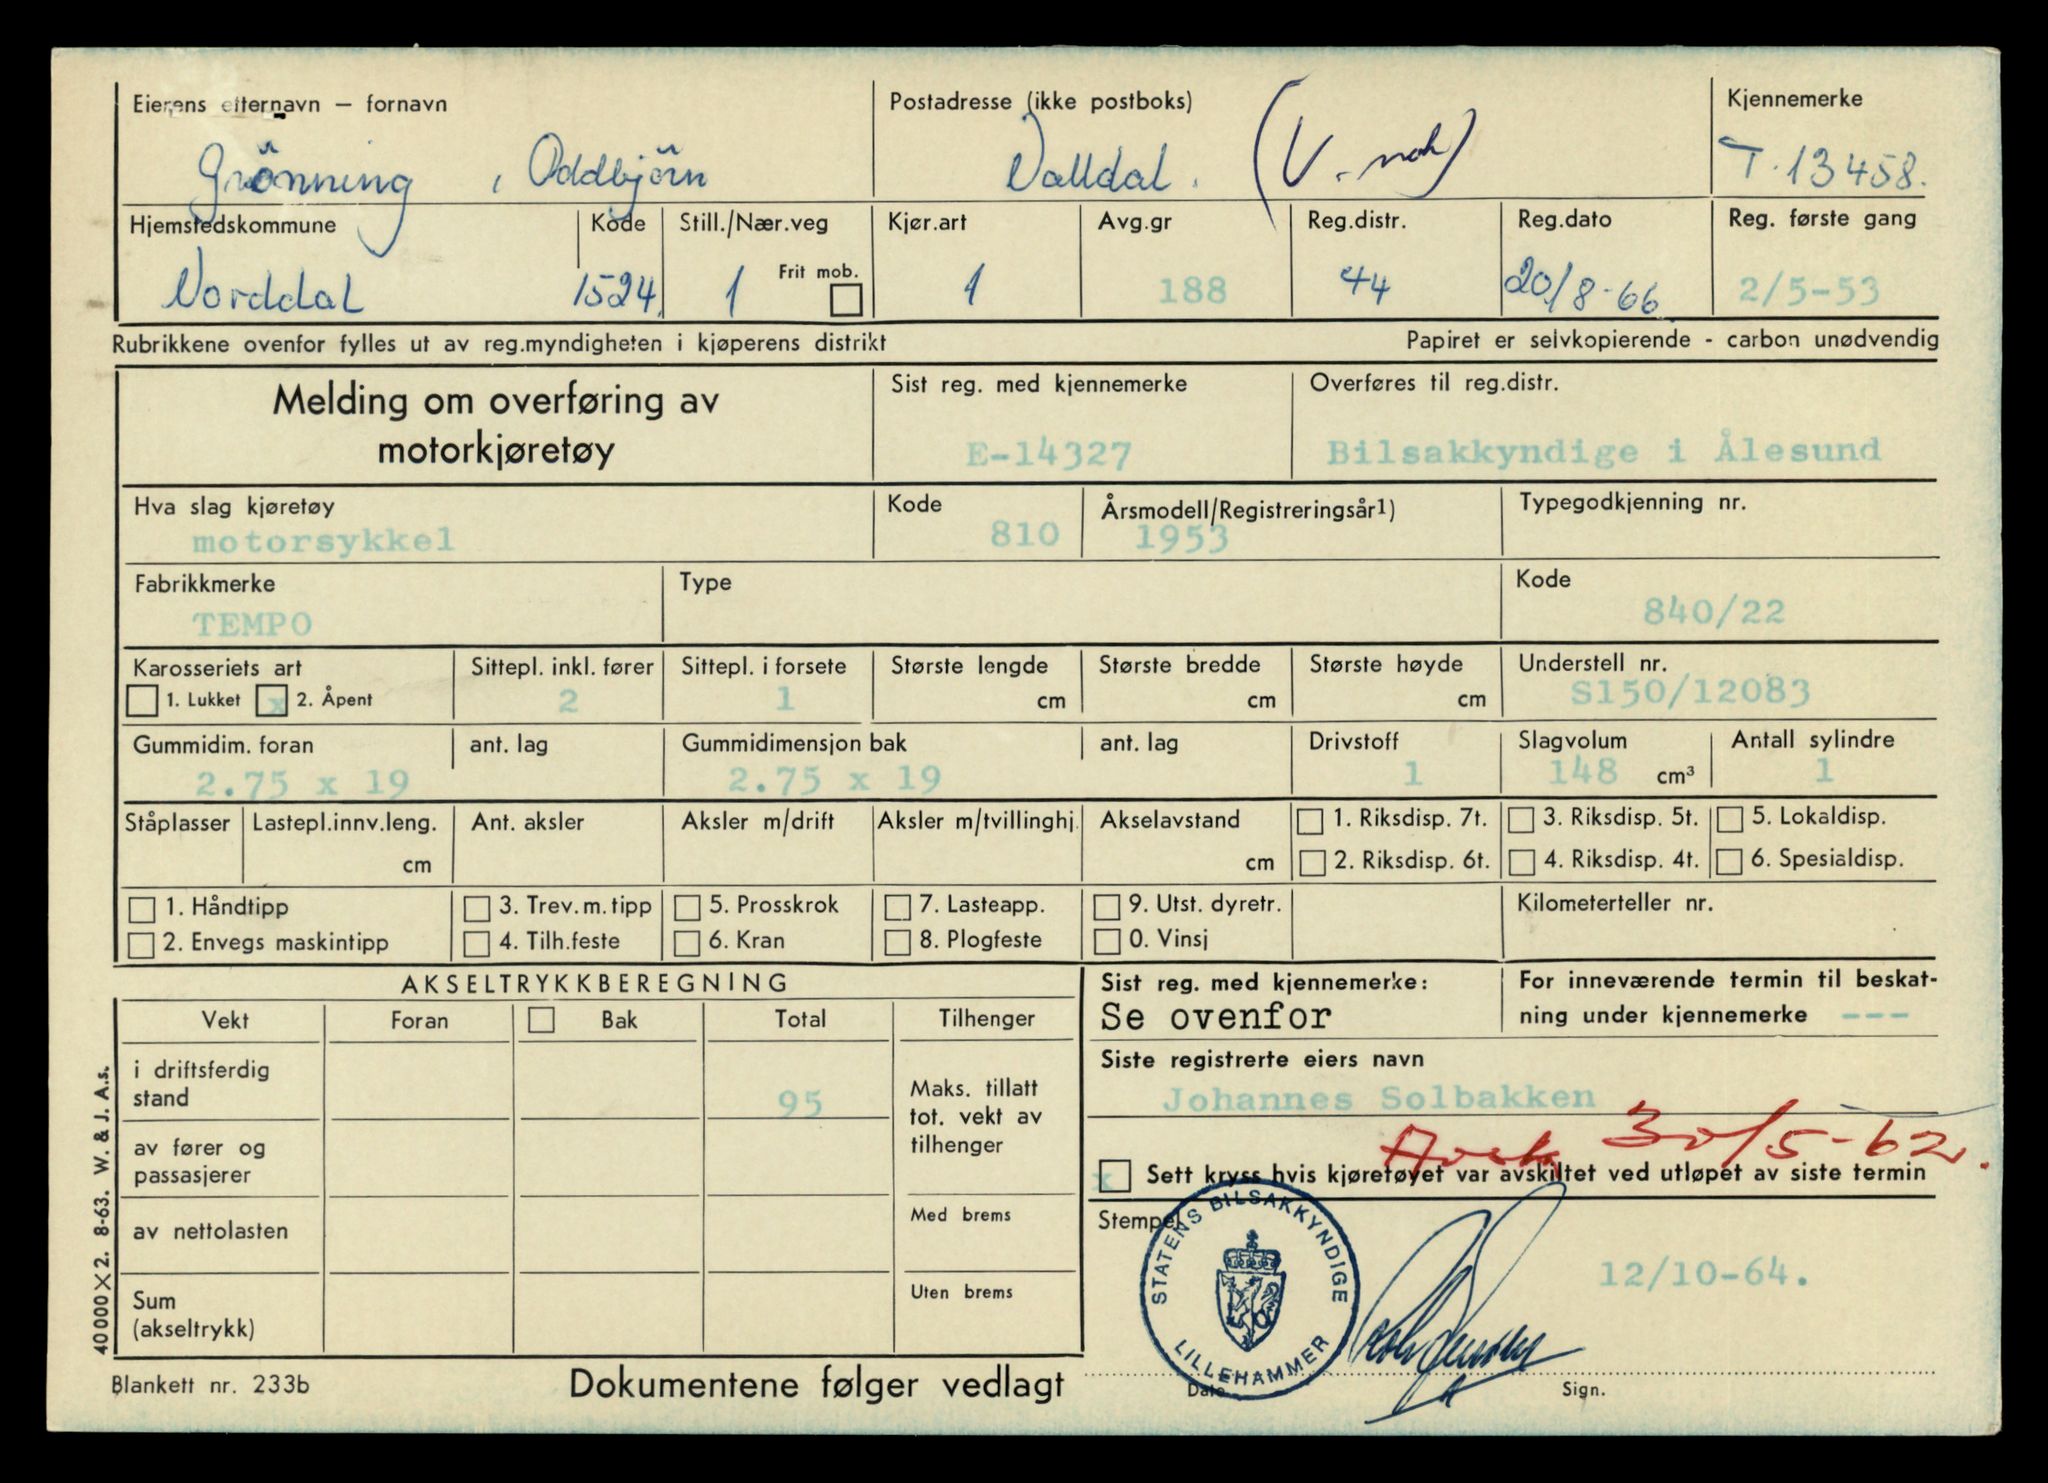 Eierens etternavn — fornavn
Grönning, Oddbjörn
Postadresse (ikke postboks)
Valldal. (V. noh)
Kjennemerke
T. 13458.
Hjemstedskommune
Norddal
Kode
1524
Still./Nær.veg
1
Frit mob.
Kjør.art
1
Avg.gr
188
Reg.distr.
44
Reg.dato
20/8-66
Reg. første gang
2/5-53
Rubrikkene ovenfor fylles ut av reg.myndigheten i kjøperens distrikt
Papiret er selvkopierende - carbon unødvendig
Melding om overføring av
motorkjøretøy
Sist reg. med kjennemerke
E-14327
Overføres til reg.distr.
Bilsakkyndige i Ålesund
Hva slag kjøretøy
motorsykkel
Kode
810
Årsmodell/Registreringsår1)
1953
Typegodkjenning nr.
Fabrikkmerke
TEMPO
Type
Kode
840/22
Karosseriets art
1. Lukket x 2. Åpent
Sittepl. inkl. fører
2
Sittepl. i forsete
1
Største lengde
cm
Største bredde
cm
Største høyde
cm
Understell nr.
S150/12083
Gummidim. foran
2.75 x 19
ant. lag
Gummidimensjon bak
2.75 x 19
ant. lag
Drivstoff
1
Slagvolum
148 cm³
Antall sylindre
1
Ståplasser
Lastepl.innv.leng.
cm
Ant. aksler
Aksler m/drift
Aksler m/tvillinghj.
Akselavstand
cm
1. Riksdisp. 7t.
2. Riksdisp. 6t.
3. Riksdisp. 5t.
4. Riksdisp. 4t.
5. Lokaldisp.
6. Spesialdisp.
1. Håndtipp
2. Envegs maskintipp
3. Trev. m. tipp
4. Tilh.feste
5. Prosskrok
6. Kran
7. Lasteapp.
8. Plogfeste
9. Utst. dyretr.
0. Vinsj
Kilometerteller nr.
AKSELTRYKKBEREGNING
Vekt
Foran
Bak
Total
Tilhenger
i driftsferdig
stand
95
Maks. tillatt
tot. vekt av
tilhenger
av fører og
passasjerer
av nettolasten
Med brems
Sum
(akseltrykk)
Uten brems
Sist reg. med kjennemerke:
Se ovenfor
For inneværende termin til beskat-
ning under kjennemerke ---
Siste registrerte eiers navn
Johannes Solbakken
30/5-62.
x Sett kryss hvis kjøretøyet var avskiltet ved utløpet av siste termin
Stempel
STATENS BILSAKKYNDIGE
LILLEHAMMER
12/10-64.
Dato
Sign.
40 000 X 2. 8-63. W. & J. A.s.
Blankett nr. 233b
Dokumentene følger vedlagt